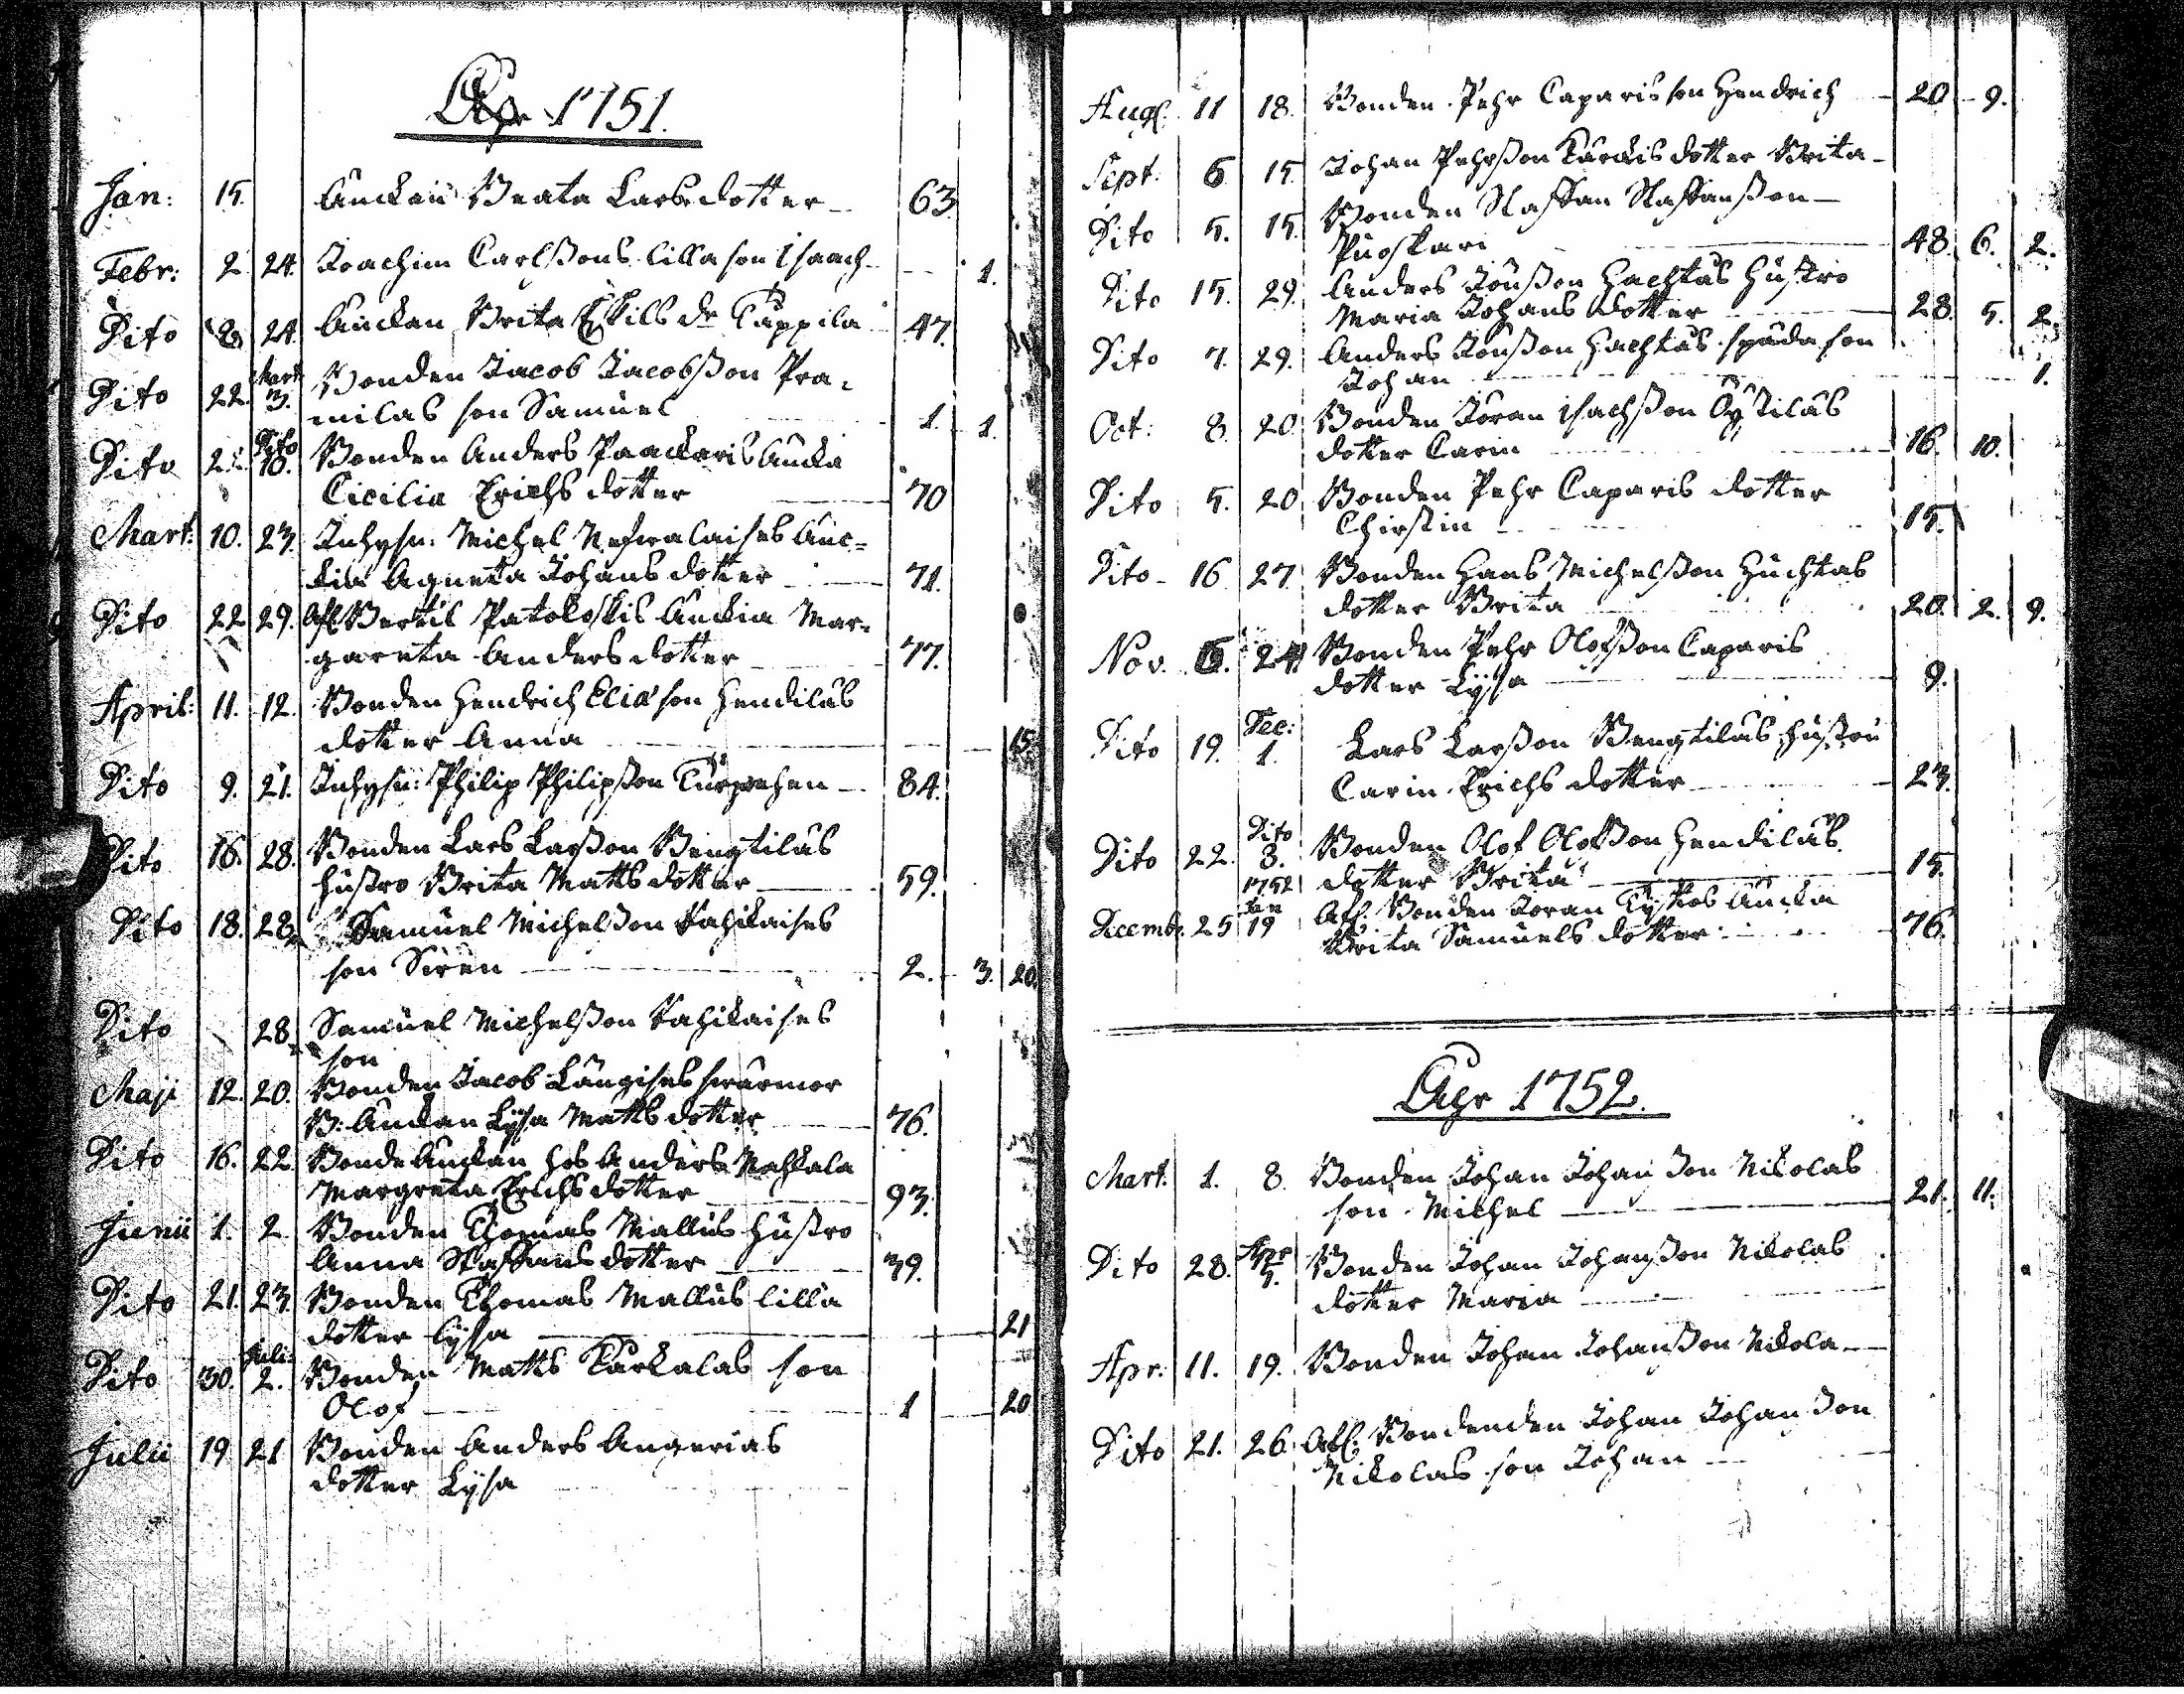 Åhr 1751.
Jan: 15. Änckan Beata Larsdotter 63
Febr: 2 24. Joachim Carlssons lilla son Isaach 1.
Dito 24. Änckan Brita Eskils dr Käppilä 47.
Dito 22. Mart 3. Bonden Jacob Jacobsson Pra-
milas son Samuel 1. 1.
Dito Dito 10. Bonden Anders Paackaris Äncka
Cicilia Erichsdotter 70
Mart: 10. 23. Inhyss: Michel Änc-
kia Agneta Johansdotter 71.
Dito 22 29. Afl. Bertil Änckia Mar-
gareta Andersdotter 77.
April: 11. 12. Bonden Hendrich Eliæson Hendilas
dotter Anna 15
Dito 9. 21. Inhyss: Philip Philipsson 84.
Dito 16. 28. Bonden Lars Larsson Bengtilas
hustro Brita Mattsdotter 59.
Dito 18. 28 Samuel Michelsson Kahikaises
son Siren 2. 3. 20.
Dito 28 Samuel Michelsson Kahikaises
son
Maji 12. 20. Bonden Jacob Längises swärmor
B: Änckan Lysa Mattsdotter 76.
Dito 16. 22 Bonde Änckan hos Anders
Margreta Erichsdotter 93.
Junii 1. 2 Bonden Thomas Mallus hustro
Anna Staffansdotter 39.
Dito 21. 23. Bonden Thomas Mallus lilla
dotter Lysa 21
Dito 30. Juli: 2. Bonden Matts Kärkälas son
Olof 1 20
Julii 19. 21 Bonden Anders Angerias
dotter Lysa
Aug: 11 18. Bonden Pehr Caparis son Hendrich 20 9.
Sept. 6 15. Johan Pehrsson dotter Brita
Dito 5. 15. Bonden Staffan Staffansson
48. 6. 2.
Dito 15. 29. Anders Jönsson Hachtus hustro
Maria Johansdotter 28. 5. 2.
Dito 7. 29. Anders Jönsson Hachtus späda son
Johan 1.
Oct: 8 20 Bonden Jöran Isachsson Öjtilas
dotter Carin 16. 10.
Dito 5. 20 Bonden Pehr Caparis dotter
Chirstin 15.
Dito 16 27 Bonden Hans Michelsson Huchtas
dotter Brita 20. 2. 9.
Nov. 6. 24. Bonden Pehr Olofsson Caparis
dotter Lysa 9.
Dito 19. Dec: 1. Lars Larsson Bengtilas hustru
Carin Erichsdotter 23.
Dito 22. Dito 3. Bonden Olof Olofsson Hendilas
dotter Brita 15.
Decemb. 25 1752 Jan 19 Afl. Bonden Jöran Äncka
Brita Samuelsdotter 76.
Åhr 1752.
Mart. 1. 8. Bonden Johan Johansson Nikolas
son Michel 21. 11.
Dito 28. Apr 5. Bonden Johan Johansson Nikolas
dotter Maria
Apr: 11. 19. Bonden Johan Johansson Nikola
Dito 21. 26. Afl: Bondenden Johan Johansson
Nikolas son Johan